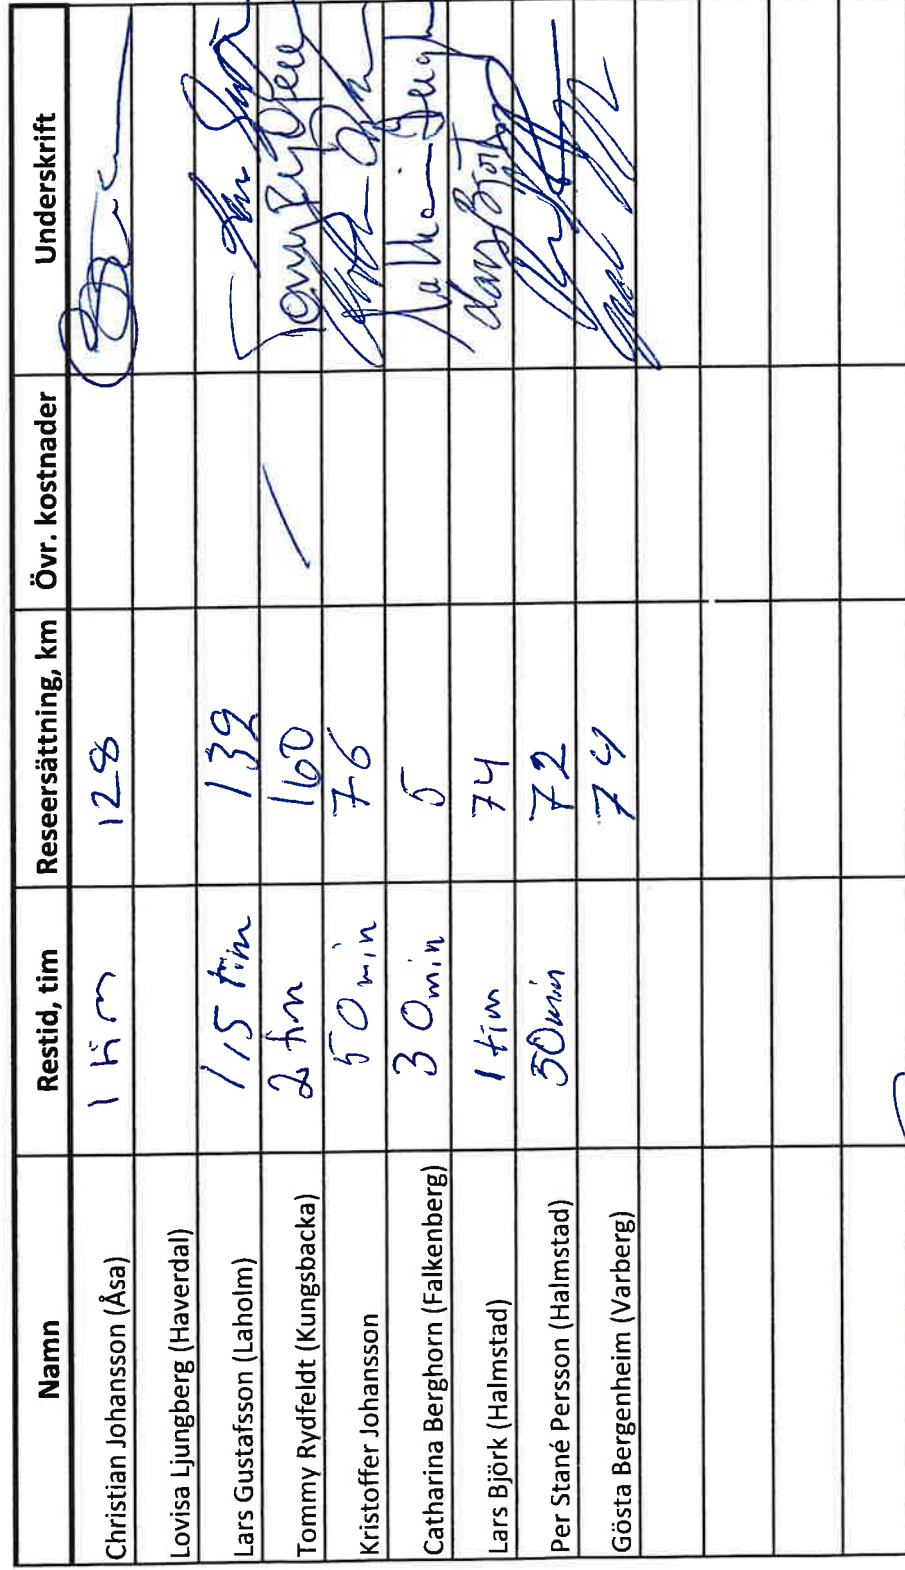 Namn Restid, tim Reseersättning, km Övr. kostnader Underskrift
Christian Johansson (Åsa) 1 tim 128
Lovisa Ljungberg (Haverdal)
Lars Gustafsson (Laholm) 1,5 tim 139
Tommy Rydfeldt (Kungsbacka) 2 tim 160 / Tommy Rydfeldt
Kristoffer Johansson 50 min 76
Catharina Berghorn (Falkenberg) 30 min 5
Lars Björk (Halmstad) 1 tim 74 Lars Björk
Per Stané Persson (Halmstad) 50 min 72
Gösta Bergenheim (Varberg) 74